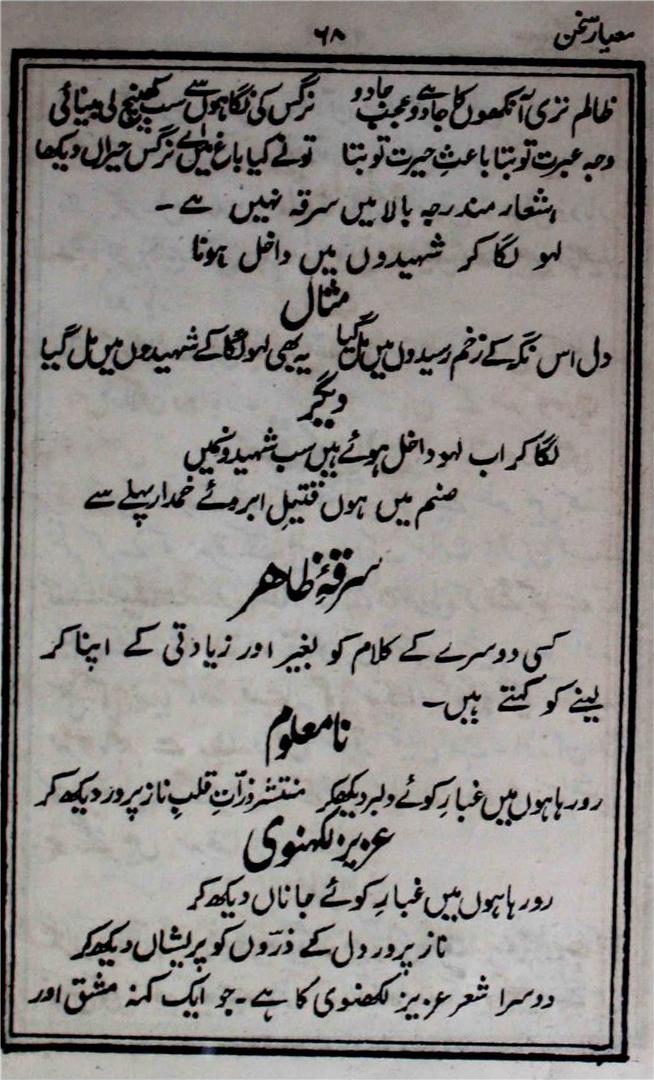 معیار سخن
۶۸
ظالم تری آنکھوں کا جادو ہے عجب جادو نرگس کی نگاہوں سے سب کھینچ لی بینائی
وجہ عبرت تو بتا باعثِ حیرت تو بتا تونے کیا باغ میں اے نرگس حیراں دیکھا
اشعار مندرجہ بالا میں سرقہ نہیں ہے ۔
لہو لگا کر شہیدوں میں داخل ہونا
مثال
دل اس نگہ کے زخم رسیدوں میں مل گیا یہ بھی لہو لگا کے شہیدوں میں مل گیا
دیگر
لگا کر اب لہو داخل ہوئے ہیں سب شہیدونمیں
صنم میں ہوں قتیلِ ابروئے خمدار پہلے سے
سرقۂ ظاھر
کسی دوسرے کے کلام کو بغیر اور زیادتی کے اپنا کر
لینے کو کہتے ہیں۔
نامعلوم
رو رہا ہوں میں غبارِ کوئے دلبر دیکھکر منتشر ذرّاتِ قلبِ ناز پرور دیکھ کر
عزیز لکھنوی
رو رہا ہوں میں غبارِ کوئے جاناں دیکھ کر
ناز پرور دل کے ذرّوں کو پریشاں دیکھ کر
دوسرا شعر عزیز لکھنوی کا ہے ۔ جو ایک کہنہ مشق اور